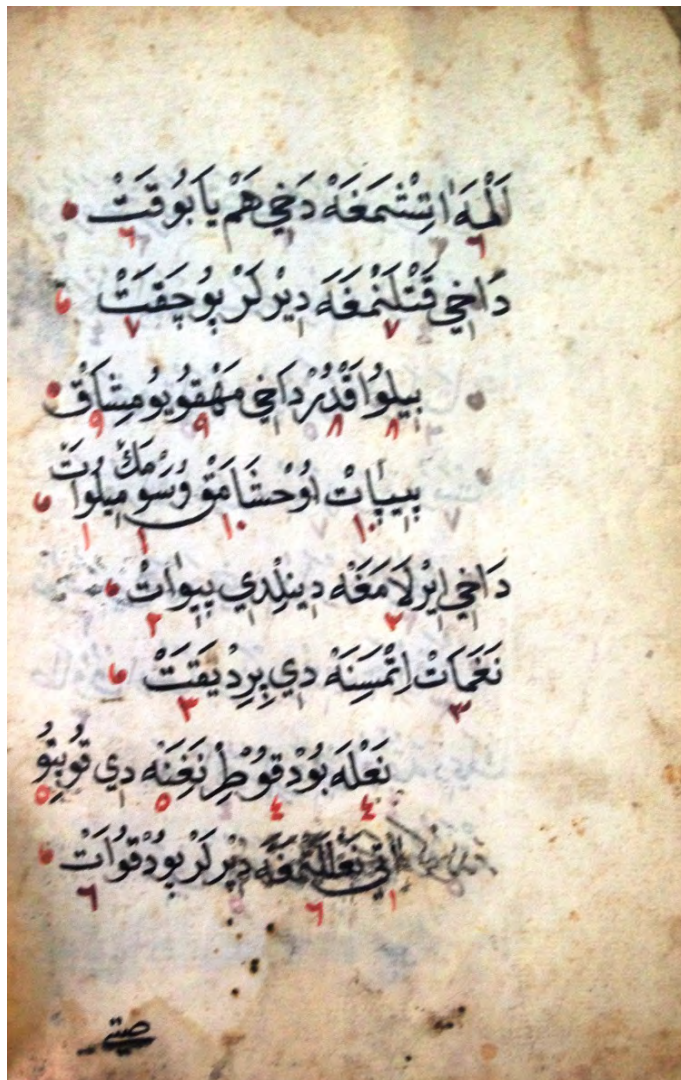 اَلْمَهَ اتِشْتَمَغَهْ دَخِي هَمْ يَا بُوقَتْ
٦ ٦
دَاخِي قَتْلَنْمَغَه دِيْرلَرْ بُوجَقَتْ
٧ ٧
بِيلوُاقْدُرْ دَاخِي مَهْقوُيوُمِشَاقْ
٨ ٨ ٩ ٩
بِيبَاتْ اوُحشَامَقْ وُرْمَكْ
١٠ ١٠ ١ ١
دَاخِي اِيْرلَامَغَه دِينلِدِي بِيوَاتْ
٢ ٢
نَغَمَاتْ اِتْمَسِنَهْ دِي بِرِدْيَقَتْ
٣ ٣
نَعْلَه بُودْقوُطِرْ نَعِنَه دِي قوُبِتوُ
٤ ٤ ٥ ٥
اتي دِيْرلَرْ بوُدْقوُاتْ
١ ٦ ٦